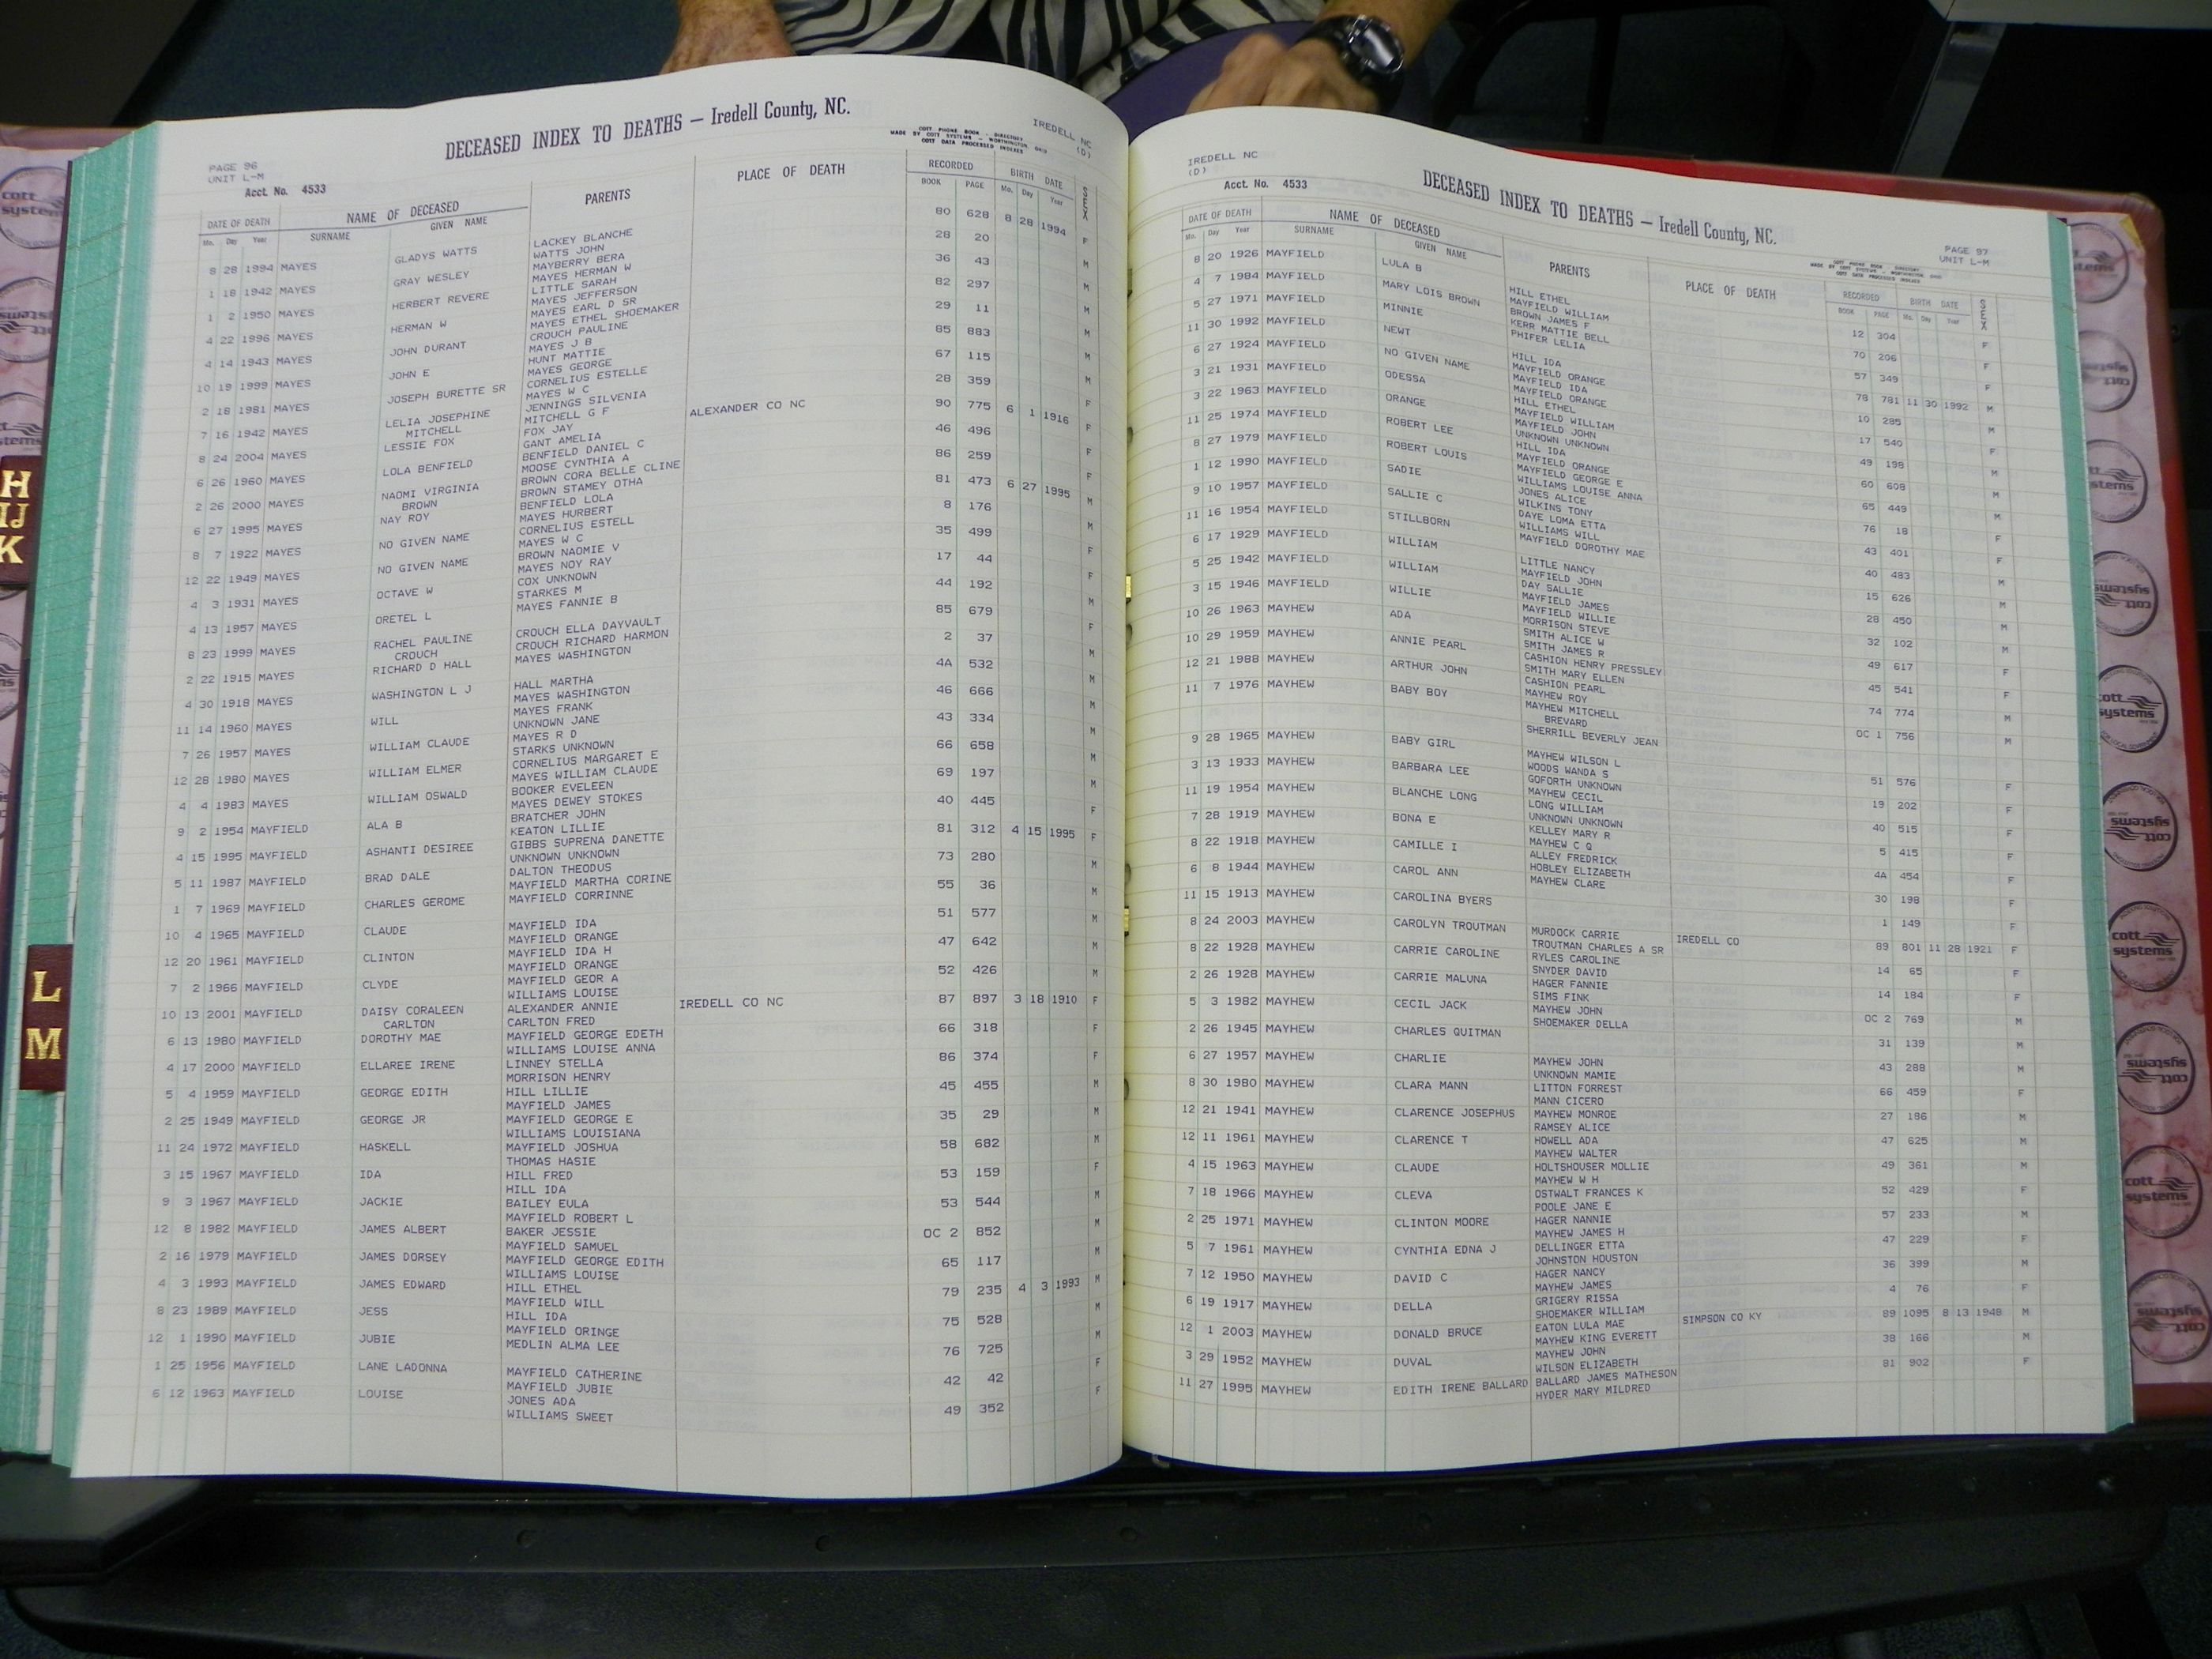 DECEASED INDEX TO DEATHS — Iredell County, NC.
COTT PHONE BOOK - DIRECTORY
MADE BY COTT SYSTEMS - WORTHINGTON, OHIO
COTT DATA PROCESSED INDEXES
IREDELL NC
(D)
PAGE 96
UNIT L-M
Acct. No. 4533
DATE OF DEATH NAME OF DECEASED PARENTS PLACE OF DEATH RECORDED BIRTH DATE SEX
Mo. Day Year SURNAME GIVEN NAME BOOK PAGE Mo. Day Year
8 28 1994 MAYES GLADYS WATTS LACKEY BLANCHE 80 628 8 28 1994 F
WATTS JOHN
1 18 1942 MAYES GRAY WESLEY MAYBERRY BERA 28 20 M
MAYES HERMAN W
1 2 1950 MAYES HERBERT REVERE LITTLE SARAH 36 43 M
MAYES JEFFERSON
4 22 1996 MAYES HERMAN W MAYES EARL D SR 82 297 M
MAYES ETHEL SHOEMAKER
4 14 1943 MAYES JOHN DURANT CROUCH PAULINE 29 11 M
MAYES J B
10 19 1999 MAYES JOHN E HUNT MATTIE 85 883 M
MAYES GEORGE
2 18 1981 MAYES JOSEPH BURETTE SR CORNELIUS ESTELLE 67 115 M
MAYES W C
7 16 1942 MAYES LELIA JOSEPHINE JENNINGS SILVENIA 28 359 F
MITCHELL MITCHELL G F
8 24 2004 MAYES LESSIE FOX FOX JAY ALEXANDER CO NC 90 775 6 1 1916 F
GANT AMELIA
6 26 1960 MAYES LOLA BENFIELD BENFIELD DANIEL C 46 496 F
MOOSE CYNTHIA A
2 26 2000 MAYES NAOMI VIRGINIA BROWN CORA BELLE CLINE 86 259 F
BROWN BROWN STAMEY OTHA
6 27 1995 MAYES NAY ROY BENFIELD LOLA 81 473 6 27 1995 M
MAYES HURBERT
8 7 1922 MAYES NO GIVEN NAME CORNELIUS ESTELL 8 176 M
MAYES W C
12 22 1949 MAYES NO GIVEN NAME BROWN NAOMIE V 35 499 F
MAYES NOY RAY
4 3 1931 MAYES OCTAVE W COX UNKNOWN 17 44 F
STARKES M
4 13 1957 MAYES ORETEL L MAYES FANNIE B 44 192 M
8 23 1999 MAYES RACHEL PAULINE CROUCH ELLA DAYVAULT 85 679 F
CROUCH CROUCH RICHARD HARMON
2 22 1915 MAYES RICHARD D HALL MAYES WASHINGTON 2 37 M
4 30 1918 MAYES WASHINGTON L J HALL MARTHA 4A 532 M
MAYES WASHINGTON
11 14 1960 MAYES WILL MAYES FRANK 46 666 M
UNKNOWN JANE
7 26 1957 MAYES WILLIAM CLAUDE MAYES R D 43 334 M
STARKS UNKNOWN
12 28 1980 MAYES WILLIAM ELMER CORNELIUS MARGARET E 66 658 M
MAYES WILLIAM CLAUDE
4 4 1983 MAYES WILLIAM OSWALD BOOKER EVELEEN 69 197 M
MAYES DEWEY STOKES
9 2 1954 MAYFIELD ALA B BRATCHER JOHN 40 445 F
KEATON LILLIE
4 15 1995 MAYFIELD ASHANTI DESIREE GIBBS SUPRENA DANETTE 81 312 4 15 1995 F
UNKNOWN UNKNOWN
5 11 1987 MAYFIELD BRAD DALE DALTON THEODUS 73 280 M
MAYFIELD MARTHA CORINE
1 7 1969 MAYFIELD CHARLES GEROME MAYFIELD CORRINNE 55 36 M
10 4 1965 MAYFIELD CLAUDE MAYFIELD IDA 51 577 M
MAYFIELD ORANGE
12 20 1961 MAYFIELD CLINTON MAYFIELD IDA H 47 642 M
MAYFIELD ORANGE
7 2 1966 MAYFIELD CLYDE MAYFIELD GEOR A 52 426 M
WILLIAMS LOUISE
10 13 2001 MAYFIELD DAISY CORALEEN ALEXANDER ANNIE IREDELL CO NC 87 897 3 18 1910 F
CARLTON CARLTON FRED
6 13 1980 MAYFIELD DOROTHY MAE MAYFIELD GEORGE EDETH 66 318 F
WILLIAMS LOUISE ANNA
4 17 2000 MAYFIELD ELLAREE IRENE LINNEY STELLA 86 374 F
MORRISON HENRY
5 4 1959 MAYFIELD GEORGE EDITH HILL LILLIE 45 455 M
MAYFIELD JAMES
2 25 1949 MAYFIELD GEORGE JR MAYFIELD GEORGE E 35 29 M
WILLIAMS LOUISIANA
11 24 1972 MAYFIELD HASKELL MAYFIELD JOSHUA 58 682 M
THOMAS HASIE
3 15 1967 MAYFIELD IDA HILL FRED 53 159 F
HILL IDA
9 3 1967 MAYFIELD JACKIE BAILEY EULA 53 544 M
MAYFIELD ROBERT L
12 8 1982 MAYFIELD JAMES ALBERT BAKER JESSIE OC 2 852 M
MAYFIELD SAMUEL
2 16 1979 MAYFIELD JAMES DORSEY MAYFIELD GEORGE EDITH 65 117 M
WILLIAMS LOUISE
4 3 1993 MAYFIELD JAMES EDWARD HILL ETHEL 79 235 4 3 1993 M
MAYFIELD WILL
8 23 1989 MAYFIELD JESS HILL IDA 75 528 M
MAYFIELD ORINGE
12 1 1990 MAYFIELD JUBIE MEDLIN ALMA LEE 76 725 M
1 25 1956 MAYFIELD LANE LADONNA MAYFIELD CATHERINE 42 42 F
MAYFIELD JUBIE
6 12 1963 MAYFIELD LOUISE JONES ADA 49 352 F
WILLIAMS SWEET
IREDELL NC
(D)
Acct. No. 4533
DECEASED INDEX TO DEATHS — Iredell County, NC.
PAGE 97
UNIT L-M
DATE OF DEATH NAME OF DECEASED PARENTS PLACE OF DEATH RECORDED BIRTH DATE SEX
Mo. Day Year SURNAME GIVEN NAME BOOK PAGE Mo. Day Year
8 20 1926 MAYFIELD LULA B HILL ETHEL 12 304 F
MAYFIELD WILLIAM
4 7 1984 MAYFIELD MARY LOIS BROWN BROWN JAMES F 70 206 F
KERR MATTIE BELL
5 27 1971 MAYFIELD MINNIE PHIFER LELIA 57 349 F
11 30 1992 MAYFIELD NEWT HILL IDA 78 781 11 30 1992 M
MAYFIELD ORANGE
6 27 1924 MAYFIELD NO GIVEN NAME MAYFIELD IDA 10 285 M
MAYFIELD ORANGE
3 21 1931 MAYFIELD ODESSA HILL ETHEL 17 540 F
MAYFIELD WILLIAM
3 22 1963 MAYFIELD ORANGE MAYFIELD JOHN 49 198 M
UNKNOWN UNKNOWN
11 25 1974 MAYFIELD ROBERT LEE HILL IDA 60 608 M
MAYFIELD ORANGE
8 27 1979 MAYFIELD ROBERT LOUIS MAYFIELD GEORGE E 65 449 M
WILLIAMS LOUISE ANNA
1 12 1990 MAYFIELD SADIE JONES ALICE 76 18 F
WILKINS TONY
9 10 1957 MAYFIELD SALLIE C DAYE LOMA ETTA 43 401 F
WILLIAMS WILL
11 16 1954 MAYFIELD STILLBORN MAYFIELD DOROTHY MAE 40 483 M
6 17 1929 MAYFIELD WILLIAM LITTLE NANCY 15 626 M
MAYFIELD JOHN
5 25 1942 MAYFIELD WILLIAM DAY SALLIE 28 450 M
MAYFIELD JAMES
3 15 1946 MAYFIELD WILLIE MAYFIELD WILLIE 32 102 M
10 26 1963 MAYHEW ADA MORRISON STEVE 49 617 F
SMITH ALICE W
10 29 1959 MAYHEW ANNIE PEARL SMITH JAMES R 45 541 F
CASHION HENRY PRESSLEY
SMITH MARY ELLEN
12 21 1988 MAYHEW ARTHUR JOHN CASHION PEARL 74 774 M
MAYHEW ROY
11 7 1976 MAYHEW BABY BOY MAYHEW MITCHELL OC 1 756 M
BREVARD
SHERRILL BEVERLY JEAN
9 28 1965 MAYHEW BABY GIRL MAYHEW WILSON L 51 576 F
WOODS WANDA S
3 13 1933 MAYHEW BARBARA LEE GOFORTH UNKNOWN 19 202 F
MAYHEW CECIL
11 19 1954 MAYHEW BLANCHE LONG LONG WILLIAM 40 515 F
UNKNOWN UNKNOWN
7 28 1919 MAYHEW BONA E KELLEY MARY R 5 415 F
MAYHEW C Q
8 22 1918 MAYHEW CAMILLE I ALLEY FREDRICK 4A 454 F
HOBLEY ELIZABETH
6 8 1944 MAYHEW CAROL ANN MAYHEW CLARE 30 198 F
11 15 1913 MAYHEW CAROLINA BYERS 1 149 F
8 24 2003 MAYHEW CAROLYN TROUTMAN MURDOCK CARRIE IREDELL CO 89 801 11 28 1921 F
TROUTMAN CHARLES A SR
8 22 1928 MAYHEW CARRIE CAROLINE RYLES CAROLINE 14 65 F
SNYDER DAVID
2 26 1928 MAYHEW CARRIE MALUNA HAGER FANNIE 14 184 F
SIMS FINK
5 3 1982 MAYHEW CECIL JACK MAYHEW JOHN OC 2 769 M
SHOEMAKER DELLA
2 26 1945 MAYHEW CHARLES QUITMAN 31 139 M
6 27 1957 MAYHEW CHARLIE MAYHEW JOHN 43 288 M
UNKNOWN MAMIE
8 30 1980 MAYHEW CLARA MANN LITTON FORREST 66 459 F
MANN CICERO
12 21 1941 MAYHEW CLARENCE JOSEPHUS MAYHEW MONROE 27 186 M
RAMSEY ALICE
12 11 1961 MAYHEW CLARENCE T HOWELL ADA 47 625 M
MAYHEW WALTER
4 15 1963 MAYHEW CLAUDE HOLTSHOUSER MOLLIE 49 361 M
MAYHEW W H
7 18 1966 MAYHEW CLEVA OSTWALT FRANCES K 52 429 F
POOLE JANE E
2 25 1971 MAYHEW CLINTON MOORE HAGER NANNIE 57 233 M
MAYHEW JAMES H
5 7 1961 MAYHEW CYNTHIA EDNA J DELLINGER ETTA 47 229 F
JOHNSTON HOUSTON
7 12 1950 MAYHEW DAVID C HAGER NANCY 36 399 M
MAYHEW JAMES
6 19 1917 MAYHEW DELLA GRIGERY RISSA 4 76 F
SHOEMAKER WILLIAM
12 1 2003 MAYHEW DONALD BRUCE EATON LULA MAE SIMPSON CO KY 89 1095 8 13 1948 M
MAYHEW KING EVERETT
3 29 1952 MAYHEW DUVAL MAYHEW JOHN 38 166 M
WILSON ELIZABETH
11 27 1995 MAYHEW EDITH IRENE BALLARD BALLARD JAMES MATHESON 81 902 F
HYDER MARY MILDRED
H
IJ
K
L
M
cott systems